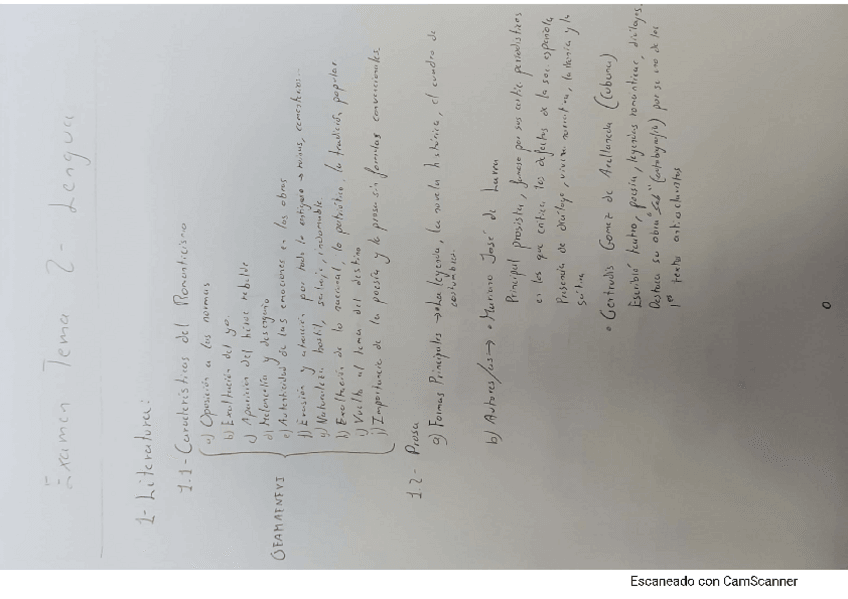 Examen Tema 2 - Lengua
1- Literatura:
1.1- Características del Romanticismo
a) Oposición a las normas
b) Exaltación del yo.
c) Aparición del héroe rebelde
d) Melancolía y desengaño
e) Autenticidad de las emociones en las obras
f) Evasión y atracción por todo lo antiguo → ruinas, cementerios...
g) Naturaleza hostil, salvaje, indomable
h) Exaltación de lo nacional, lo patriótico, la tradición popular
i) Vuelta al tema del destino
j) Importancia de la poesía y la prosa sin formulas convencionales.
OEAMAENEVI
1.2- Prosa
a) Formas Principales → La leyenda, la novela histórica, el cuadro de
costumbres.
b) Autores/as → • Mariano José de Larra
Principal prosista, famoso por sus periodísticos
en los que critica los defectos de la soc. española
Presencia de diálogo, viveza narrativa, la ironía y la
sátira
• Gertrudis Gomez de Avellaneda (Cubana)
Escribió teatro, poesía, leyendas romanticas, diálogos.
Destaca su obra "Sab" por ser uno de los
1os textos antiesclavistas
Escaneado con CamScanner